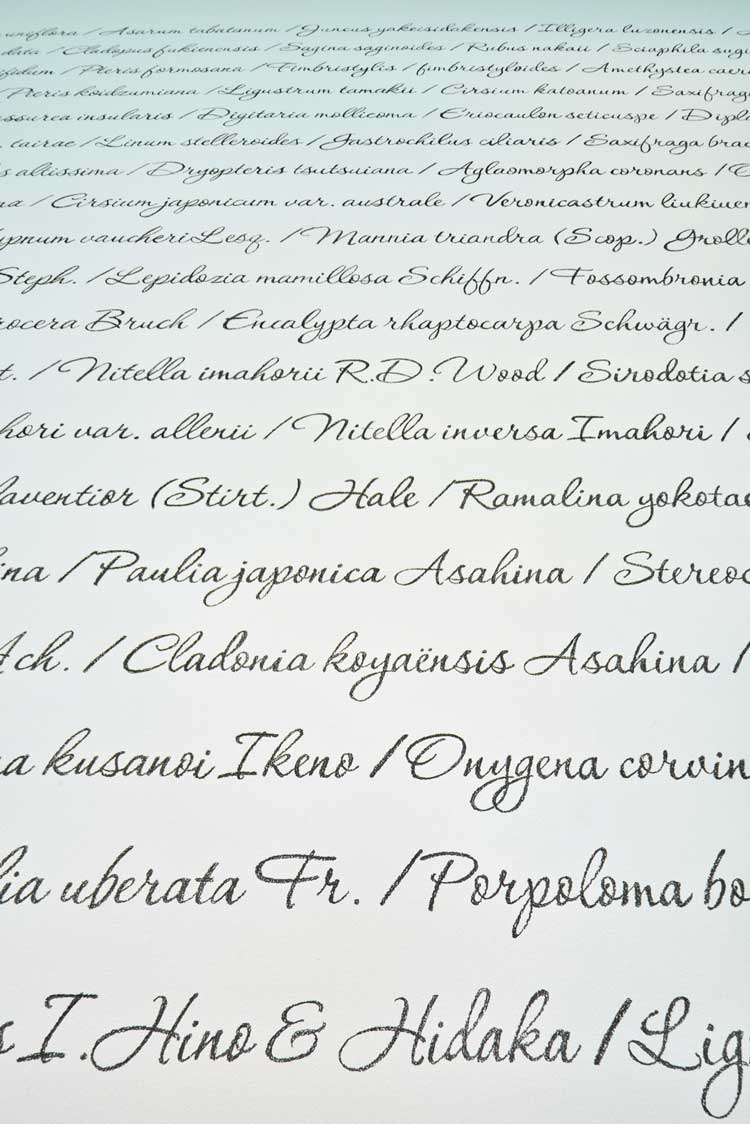 uniflora / Asarum tabatanum / Juncus yakeisidakensis / Illigera luzonensis /
data / Cladopus fukienensis / Sagina saginoides / Rubus nakaii / Sciaphila
/ Pteris formosana / Fimbristylis / fimbristyloides / Amethystea
Pteris koidzumiana / Ligustrum tamakii / Cirsium katoanum / Saxifraga
insularis / Digitaria mollicoma / Eriocaulon seticuspe /
tairae / Linum stelleroides / Gastrochilus ciliaris / Saxifraga
altissima / Dryopteris tsutsuiana / Aglaomorpha coronans /
/ Cirsium japonicum var. australe / Veronicastrum
vaucheri Lesq. / Mannia triandra (Scop.)
Steph. / Lepidozia mamillosa Schiffn. / Fossombronia
Bruch / Encalypta rhaptocarpa Schwägr. /
t. / Nitella imahorii R.D.Wood / Sirodotia s
hori var. allenii / Nitella inversa Imahori /
laventior (Stirt.) Hale / Ramalina yokotae
ina / Paulia japonica Asahina / Stereoc
Ach. / Cladonia koyaënsis Asahina /
a kusanoi Ikeno / Onygena corvin
lia uberata Fr. / Porpoloma bo
s I.Hino & Hidaka / Lig